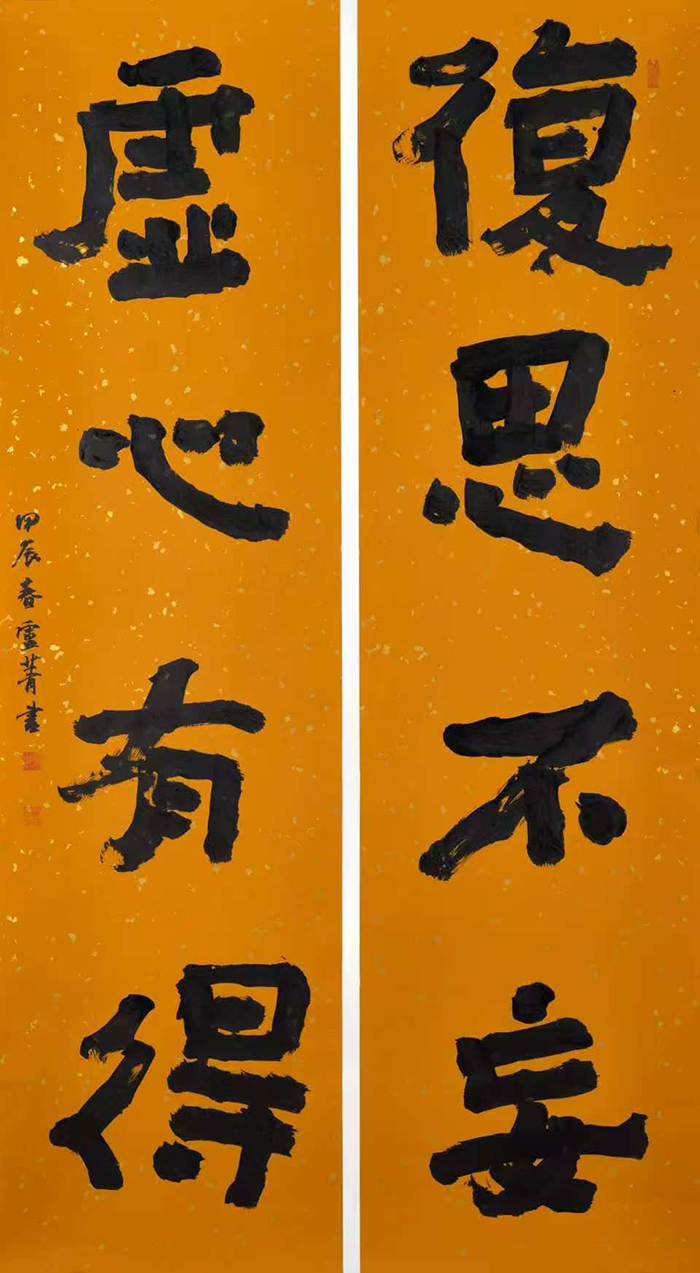 復思不妄
虛心有得
甲辰春盧菁書